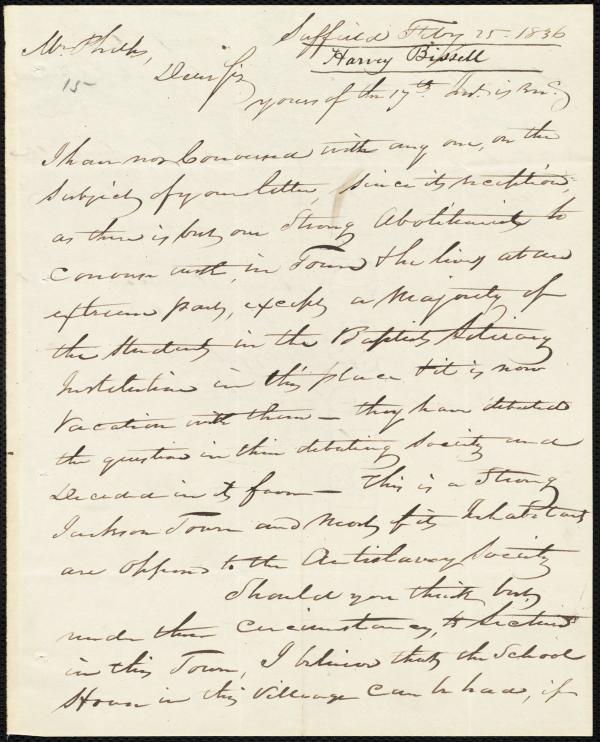 Suffield Feby 25. 1836
Harvey Bissell
Mr Phelps,
15
Dear Sir
yours of the 17th Inst. is recd.
I have not Conversed with any one, on the
Subject of your letter, since its reception,
as there is but one Strong Abolitionist to
converse with, in Town & he lives at an
extreme part, except a Majority of
the students in the Baptist Literary
Institution in this place & it is now
Vacation with them – they have debated
the question in their debating Society and
Decided in its favor – This is a Strong
Jackson Town and most of its Inhabitants
are opposed to the Antislavery Society
Should you think best,
under these circumstances, to Lecture
in this Town, I believe that the School
House in this Village can be had, if